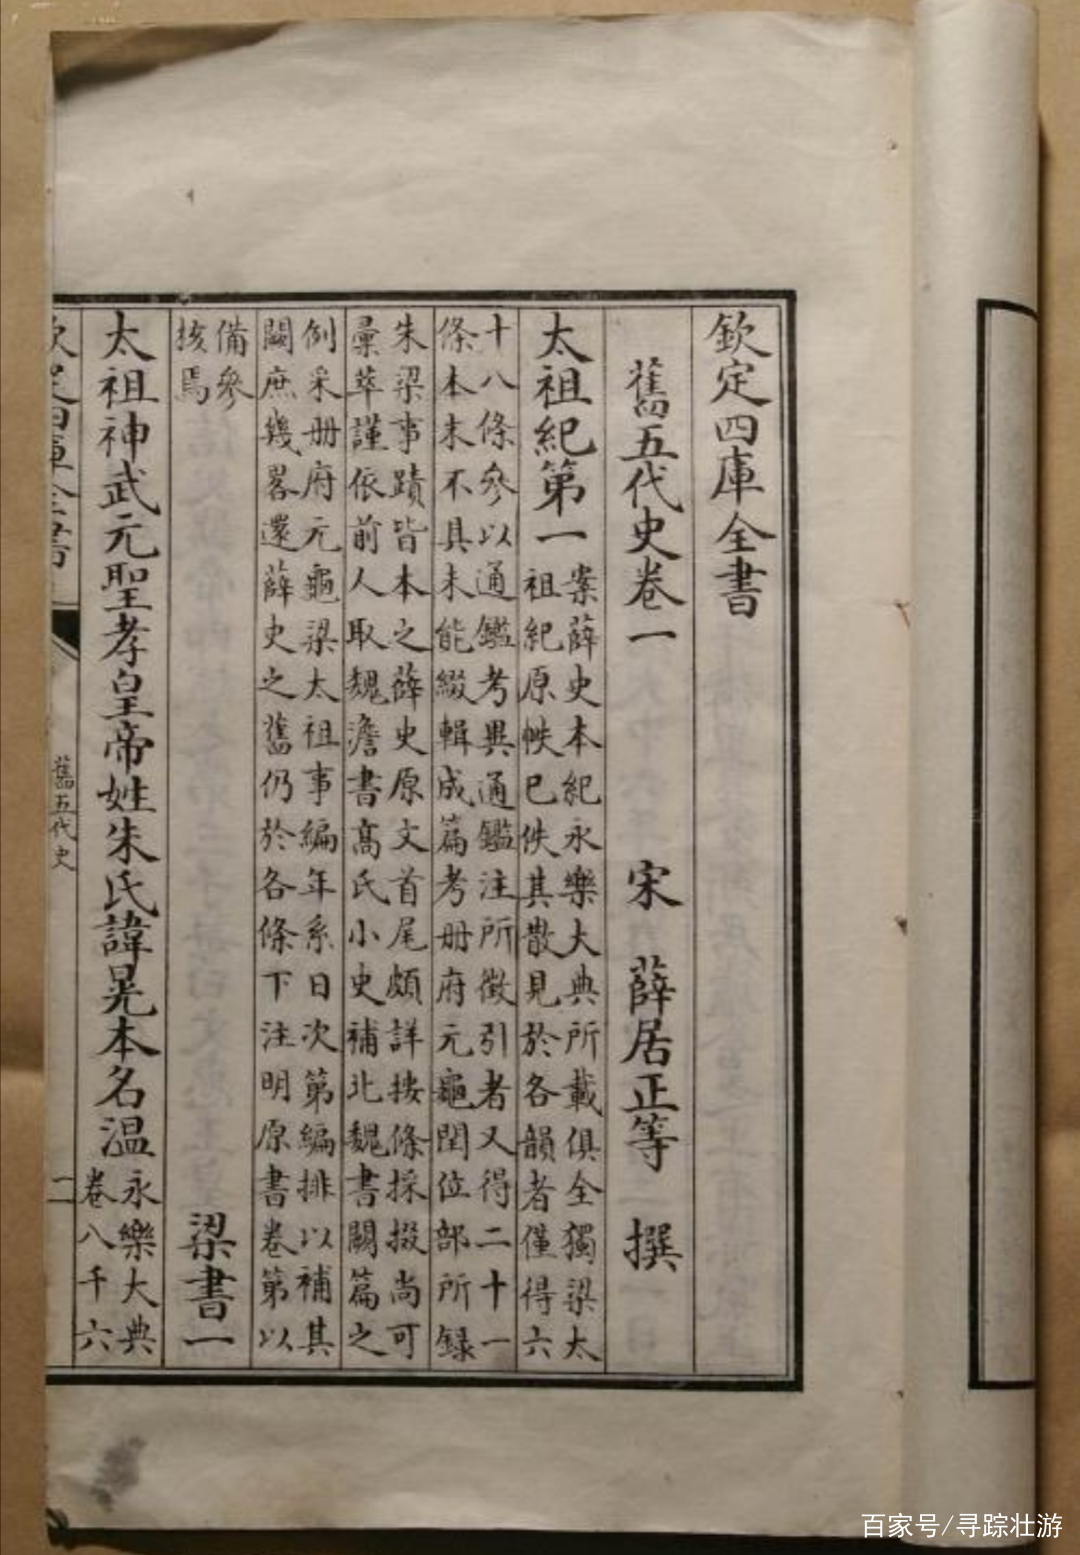 欽定四庫全書
舊五代史卷一 宋 薛居正等 撰
太祖紀第一
案薛史本紀永樂大典所載俱全獨梁太
祖紀原帙已佚其散見於各韻者僅得六
十八條參以通鑑考異通鑑注所徵引者又得二十一
條本末不具未能綴輯成篇考册府元龜閏位部所録
朱梁事蹟皆本之薛史原文首尾頗詳按條採掇尚可
彙萃謹依前人取魏澹書高氏小史補北魏書闕篇之
例采册府元龜梁太祖事編年系日次第編排以補其
闕庶幾畧還薛史之舊仍於各條下注明原書卷第以
備參
核焉
梁書一
太祖神武元聖孝皇帝姓朱氏諱晃本名温
永樂大典
卷八千六
舊五代史
百家号/寻踪壮游